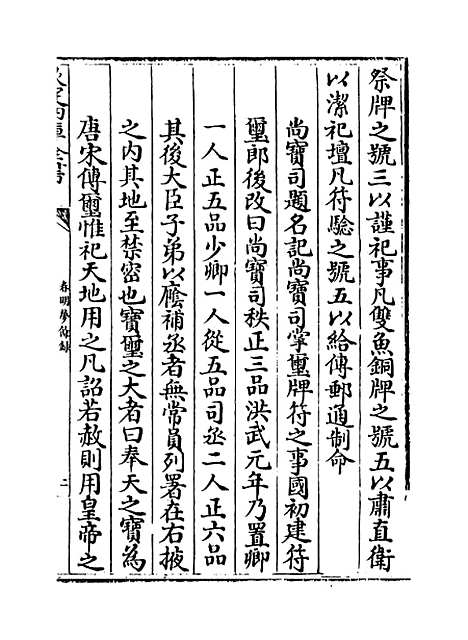 祭牌之號三以謹祀事凡雙魚銅牌之號五以肅直衛
以潔祀壇凡符驗之號五以給傳郵通制命
尚寶司題名記尚寶司掌璽牌符之事國初建符
璽郎後改曰尚寶司秩正三品洪武元年乃置卿
一人正五品少卿一人從五品司丞二人正六品
其後大臣子弟以廕補丞者無常員列署在右掖
之內其地至禁密也寶璽之大者曰奉天之寶為
唐宋傳璽惟祀天地用之凡詔若赦則用皇帝之
欽定四庫全書
春明夢餘錄
二